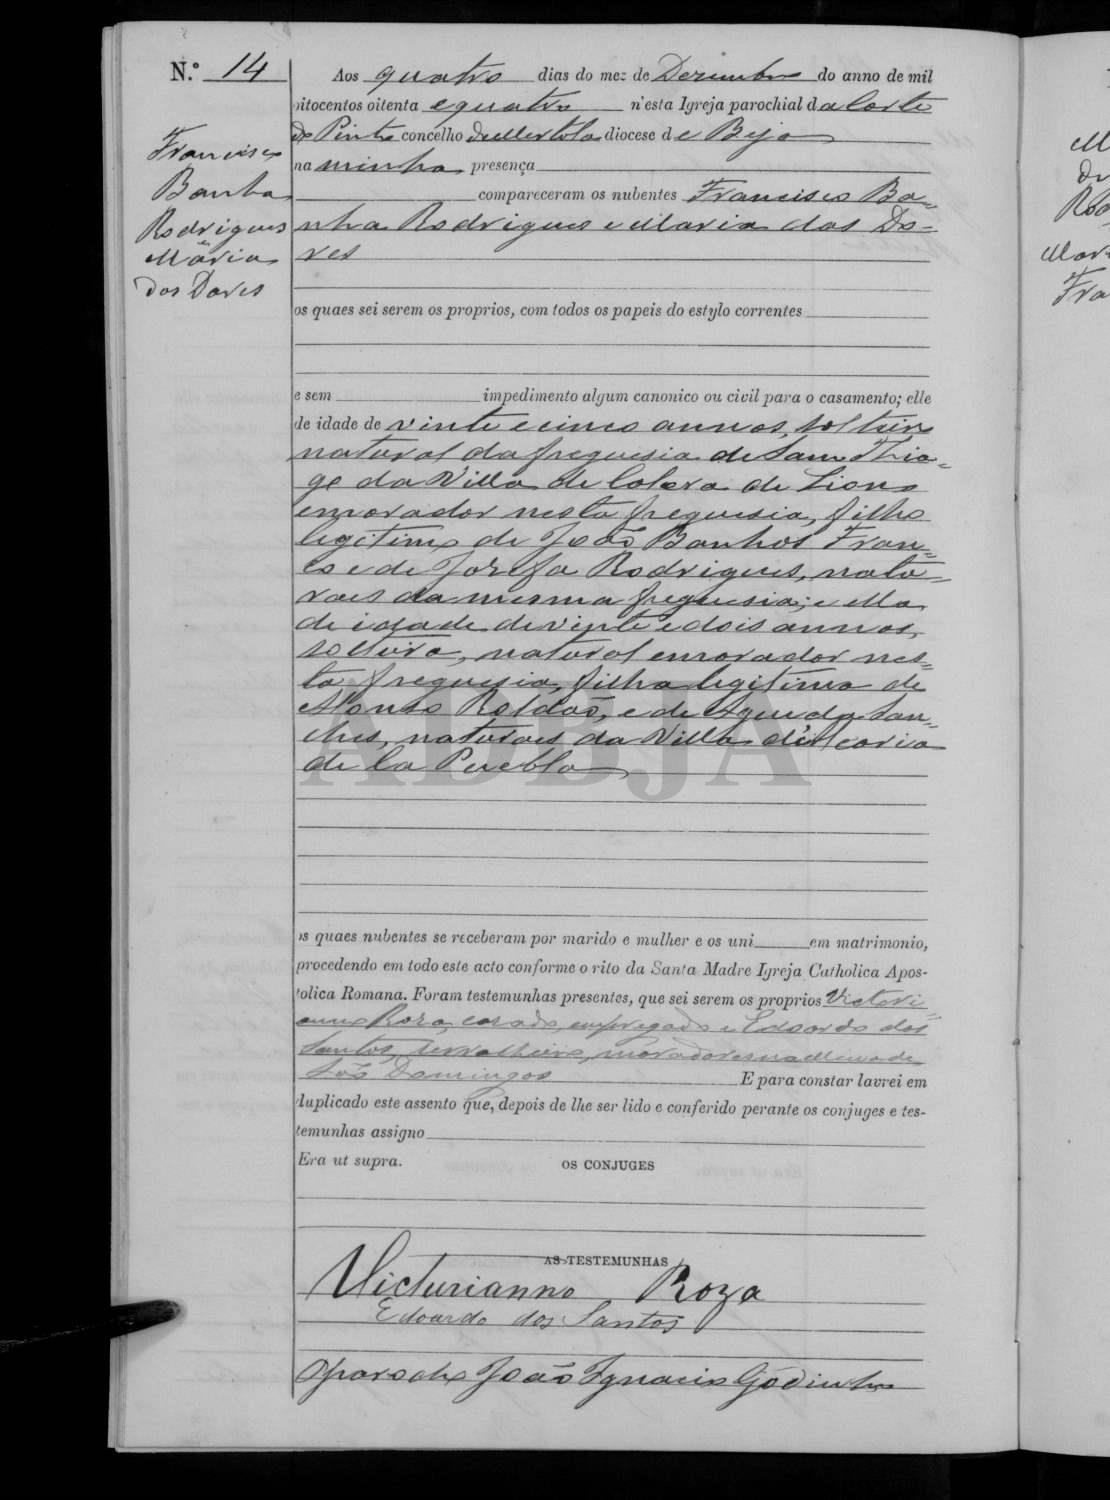 N.º 14
Francisco
Banha
Rodrigues
e
Maria
das Dores
Aos quatro dias do mez de Dezembro do anno de mil
oitocentos oitenta e quatro n'esta Igreja parochial da Corte
do Pinto concelho de Mertola diocese de Beja
na minha presença
compareceram os nubentes Francisco Ba-
nha Rodrigues e Maria das Do-
res
os quaes sei serem os proprios, com todos os papeis do estylo correntes
e sem impedimento algum canonico ou civil para o casamento; elle
de idade de vinte e cinco annos, solteiro
natural da freguesia de Sam Thia-
go da Villa de Calera de Lion
e morador nesta freguesia, filho
legitimo de João Banhos Fran-
co e de Josefa Rodrigues, natu-
raes da mesma freguesia; e ella
de idade de vinte e dois annos,
solteira, natural e morador nes-
ta freguesia, filha legitima de
Afonso Roldão, e de Agueda San-
ches, naturaes da Villa
de la Puebla
ADBJA
os quaes nubentes se receberam por marido e mulher e os uni em matrimonio,
procedendo em todo este acto conforme o rito da Santa Madre Igreja Catholica Apos-
tolica Romana. Foram testemunhas presentes, que sei serem os proprios Victori-
anno Roza, casado, empregado e Edoardo dos
Santos, serralheiro, moradores na Mina de
São Domingos E para constar lavrei em
duplicado este assento que, depois de lhe ser lido e conferido perante os conjuges e tes-
temunhas assigno
Era ut supra.
OS CONJUGES
AS TESTEMUNHAS
Victurianno Roza
Edoardo dos Santos
O parocho João Ignacio Godinho